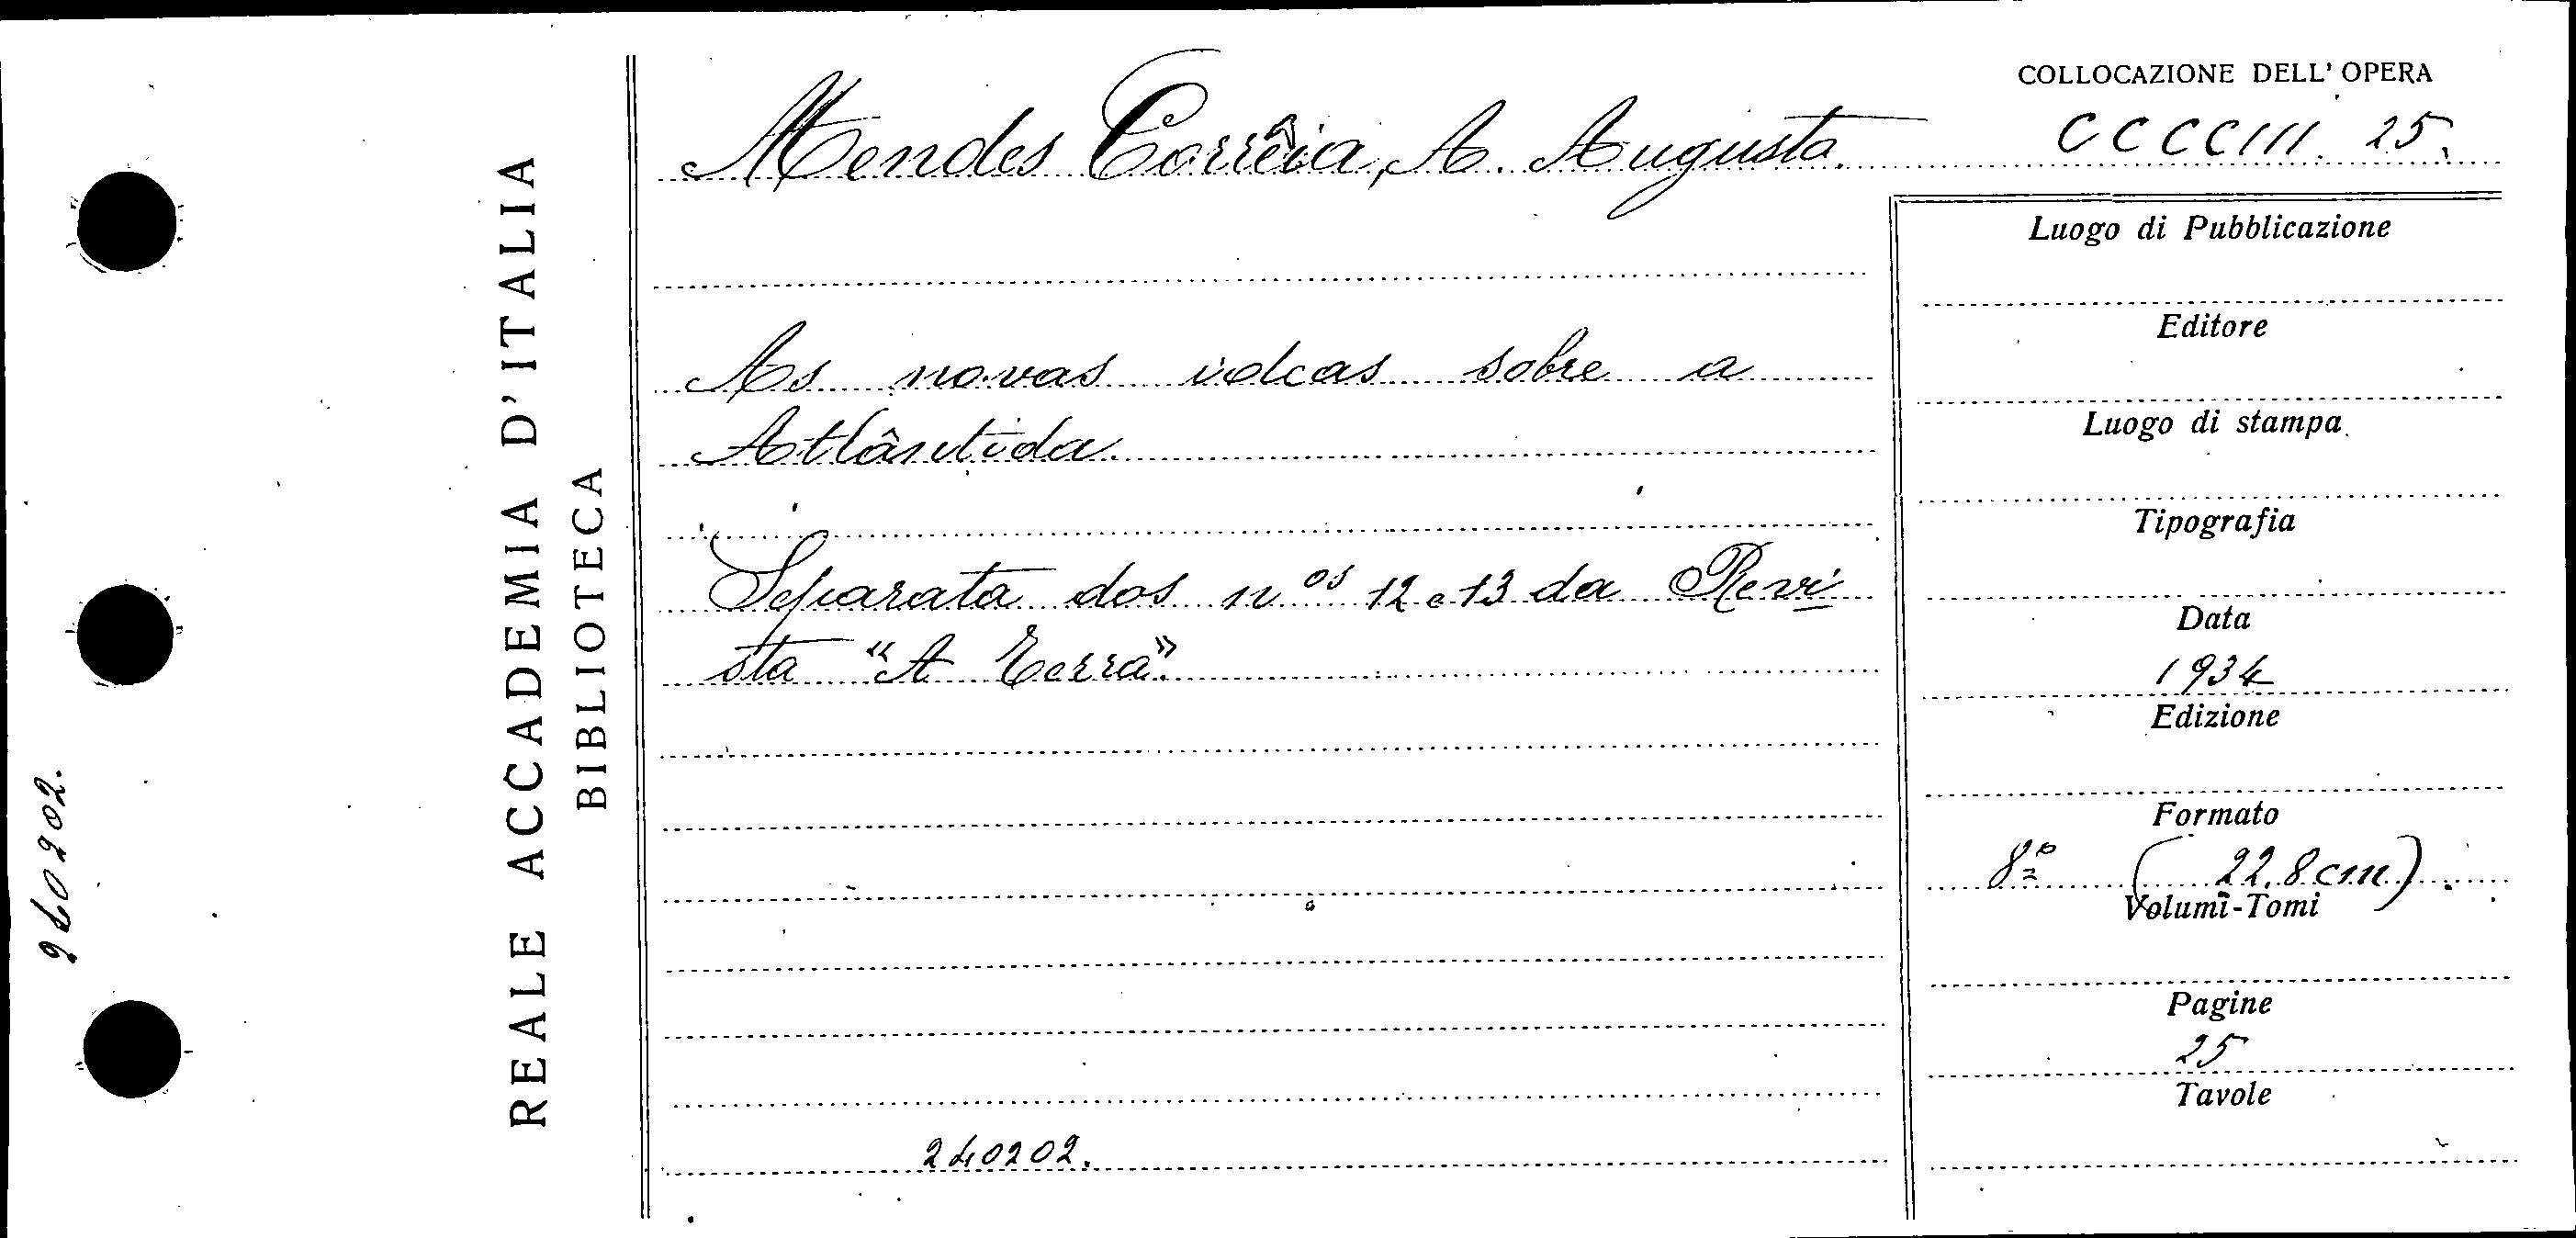 COLLOCAZIONE DELL' OPERA
CCCCIII. 25.
Mendes Corrêia, A. Augusta.
As novas idcas sobre a
Atlântida.
Separata dos nos 12 e 13 da Revi
sta "A Terra".
240202.
Luogo di Pubblicazione
Editore
Luogo di stampa
Tipografia
Data
1934
Edizione
Formato
8º (22.8 cm).
Volumi-Tomi
Pagine
25
Tavole
REALE ACCADEMIA D'ITALIA
BIBLIOTECA
240202.